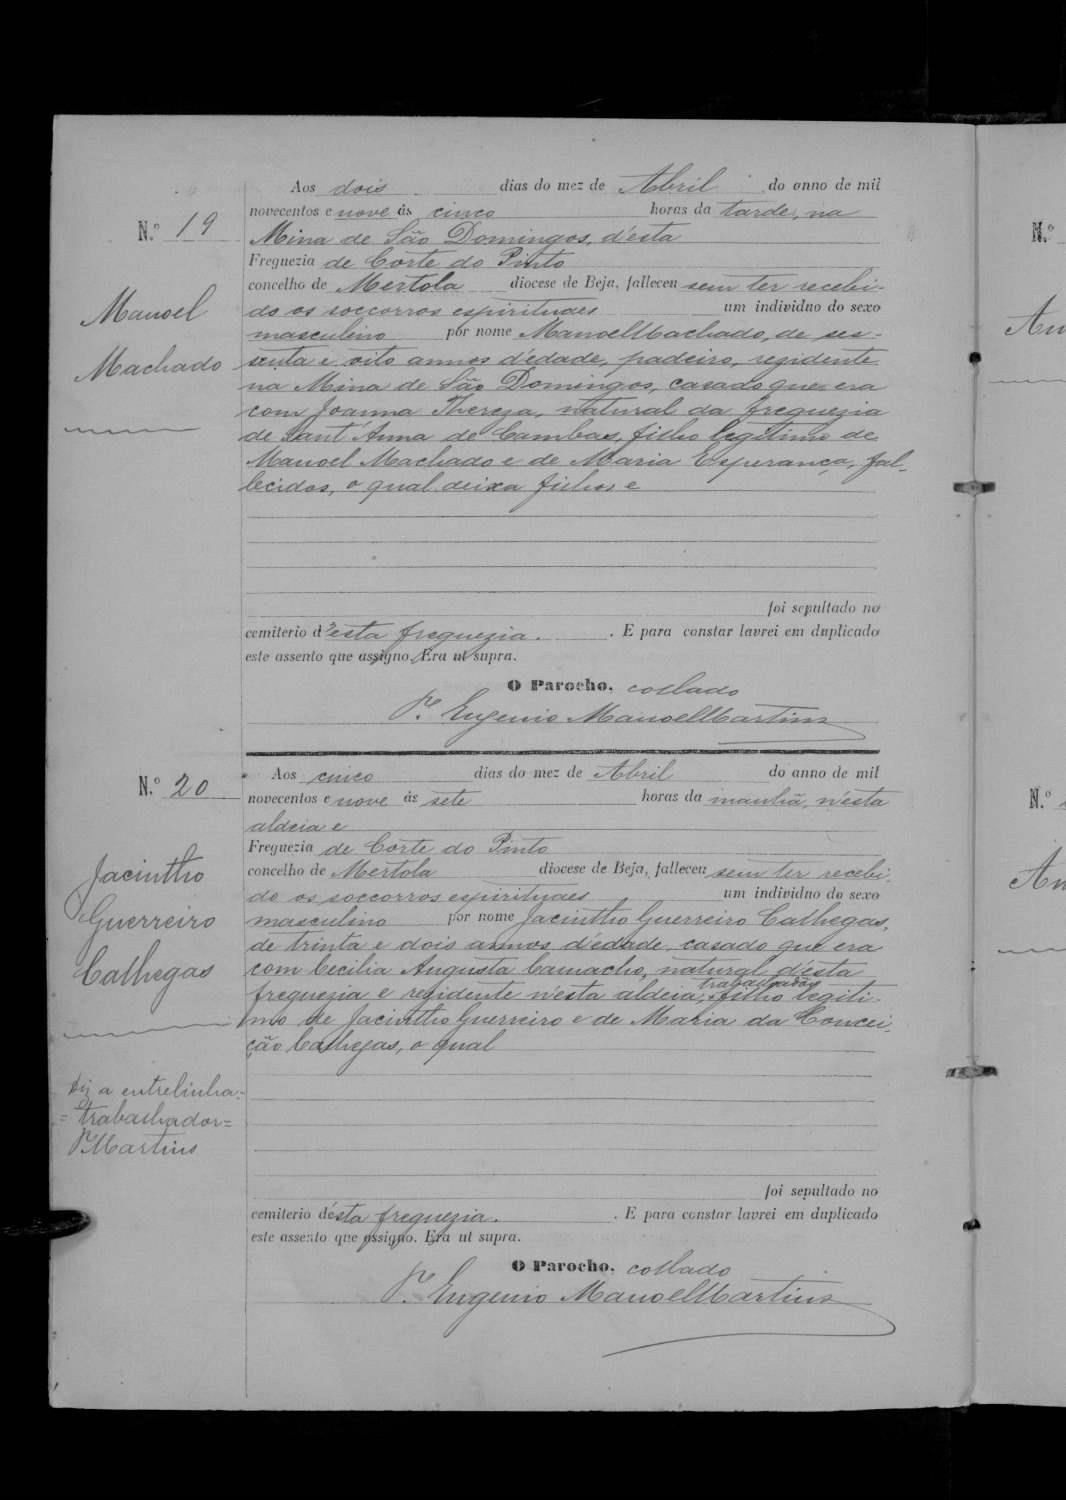 N.º 19
Manoel
Machado
Aos dois dias do mez de Abril do anno de mil
novecentos e nove ás cinco horas da tarde, na
Mina de São Domingos, d'esta
Freguezia de Corte do Pinto
concelho de Mertola diocese de Beja, falleceu sem ter recebi-
do os soccorros espirituaes um individuo do sexo
masculino por nome Manoel Machado, de ses-
senta e oito annos d'edade, padeiro, rezidente
na Mina de São Domingos, casado que era
com Joanna Thereza, natural da freguezia
de Sant'Anna de Cambas, filho legitimo de
Manoel Machado e de Maria Esperança, fal-
lecidos, o qual deixa filhos e
foi sepultado no
cemiterio d'esta freguezia. E para constar lavrei em duplicado
este assento que assigno. Era ut supra.
O Parocho, collado
P.e Eugenio Manoel Martins
N.º 20
Jacintho
Guerreiro
Calhegas
Diz a entrelinha:-
=trabalhador=
P.e Martins
Aos cinco dias do mez de Abril do anno de mil
novecentos e nove ás sete horas da manhã, n'esta
aldeia e
Freguezia de Corte do Pinto
concelho de Mertola diocese de Beja, falleceu sem ter recebi-
do os soccorros espirituaes um individuo do sexo
masculino por nome Jacintho Guerreiro Calhegas,
de trinta e dois annos d'edade, casado que era
com Cecilia Augusta Camacho, natural d'esta
trabalhador
freguezia e rezidente n'esta aldeia, filho legiti-
mo de Jacintho Guerreiro e de Maria da Concei-
ção Calhegas, o qual
foi sepultado no
cemiterio d'esta freguezia. E para constar lavrei em duplicado
este assento que assigno. Era ut supra.
O Parocho, collado
P.e Eugenio Manoel Martins
N.º
An
N.º
An